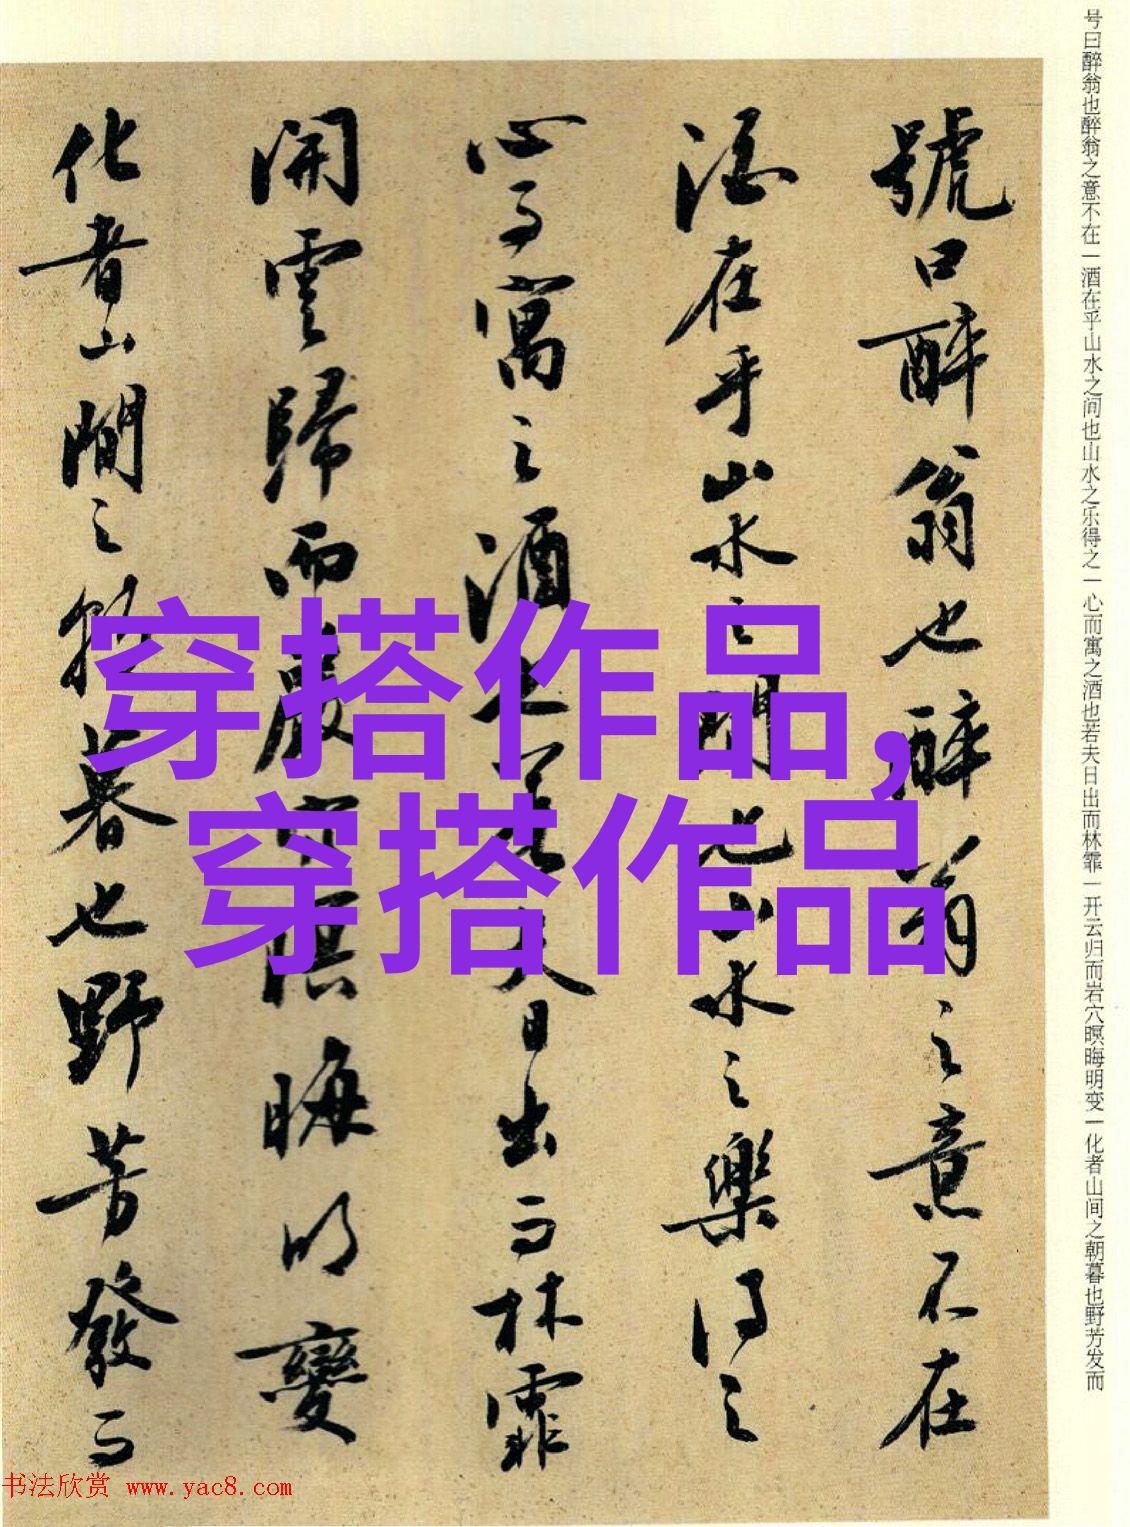 号曰醉翁也醉翁之意不在一酒在乎山水之间也山水之乐得之一心而寓之酒也若夫日出而林霏一开云归而岩穴暝晦明变一化者山间之朝暮也野芳发而
號曰醉翁也醉翁之意不在
酒在乎山水之間也山水之樂得之
心而寓之酒也若夫日出而林霏
開雲歸而巖穴暝晦明變
化者山間之朝暮也野芳發而
穿搭作品,
穿搭作品
书法欣赏 www.yac8.com